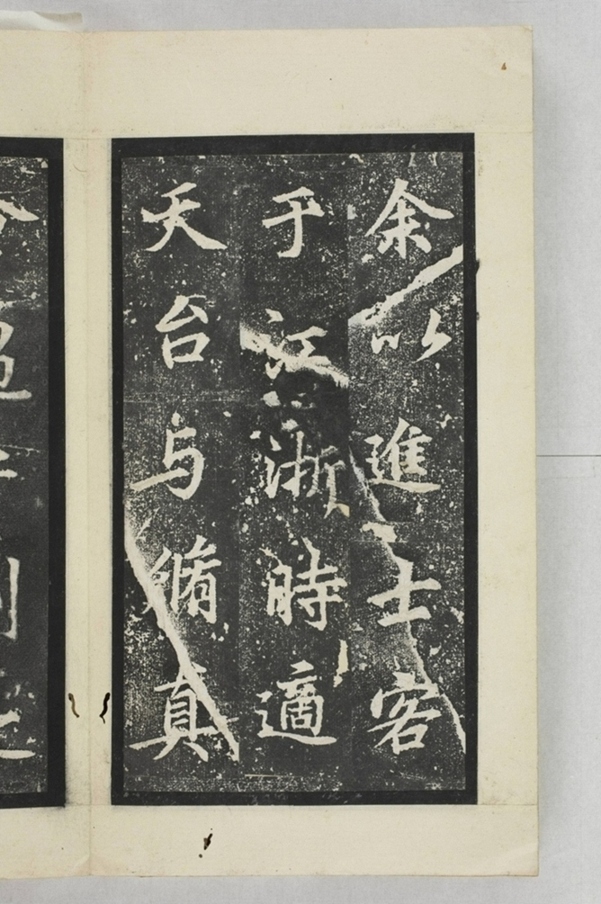 余以進士客
于江浙時適
天台与脩真